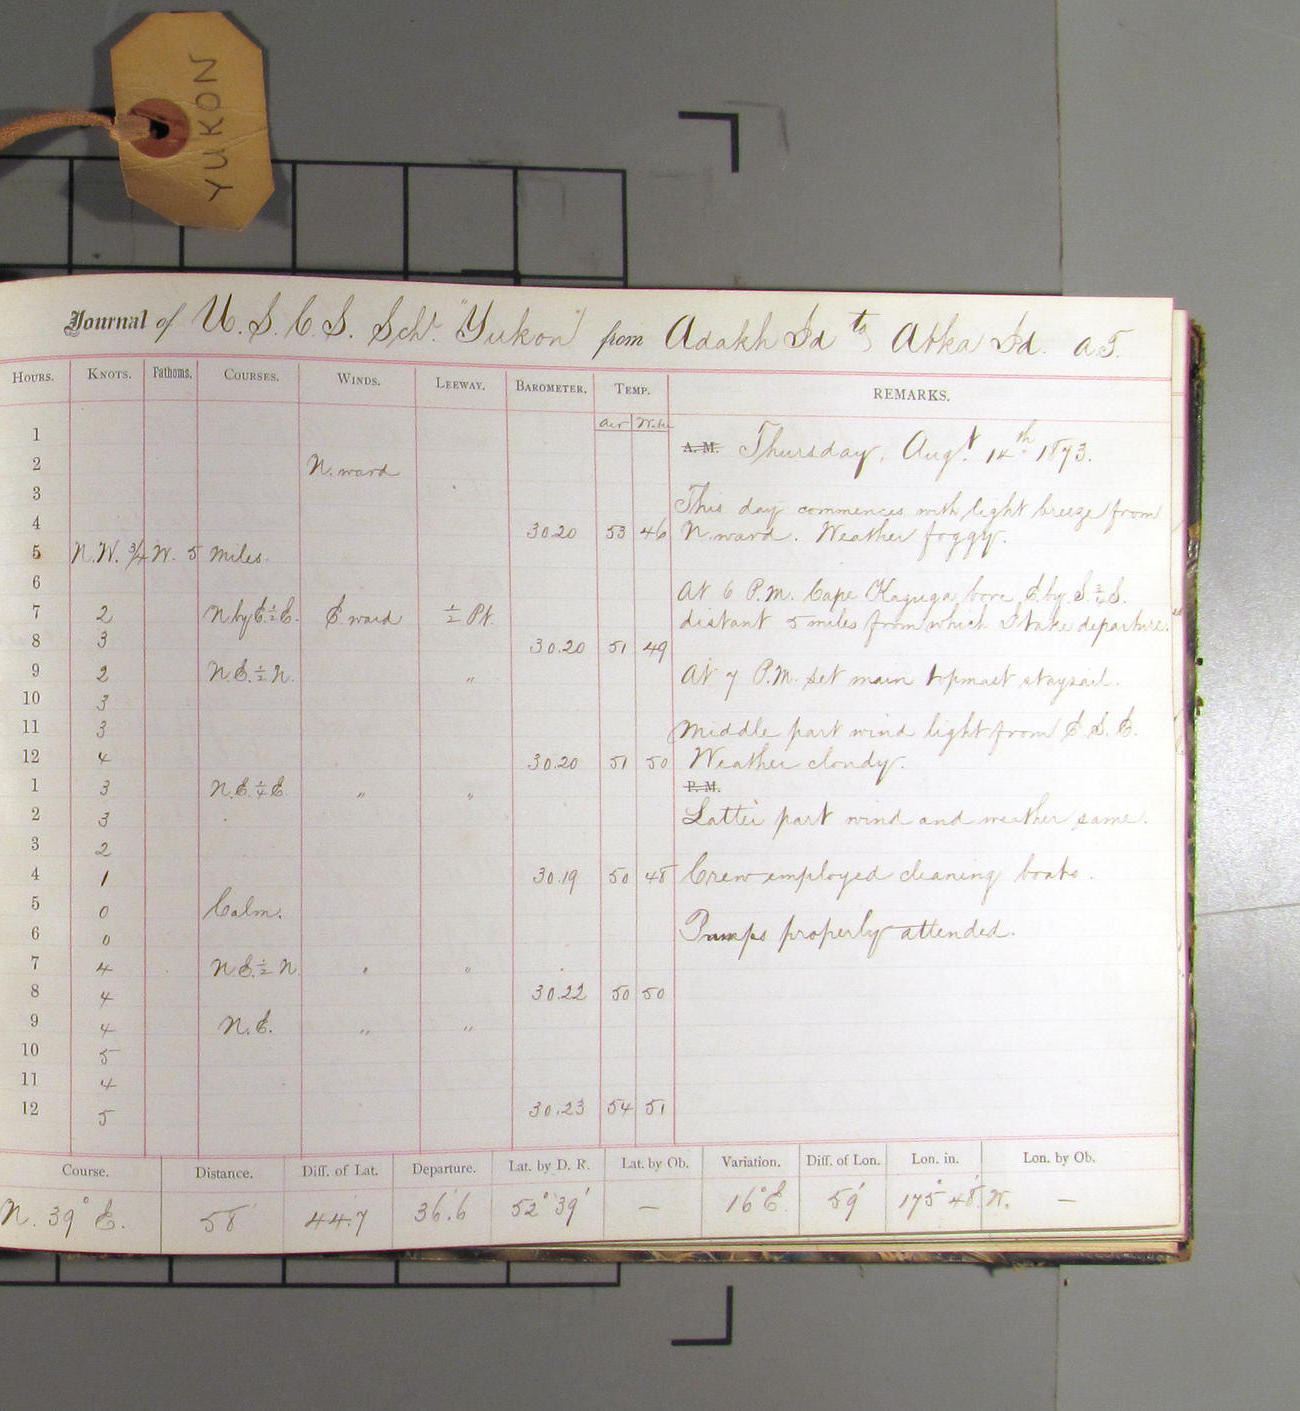 YUKON
Journal of U.S.C.S. Schr. "Yukon" from Adakh Id to Atka Id. A.T.
HOURS. KNOTS. Fathoms. COURSES. WINDS. LEEWAY. BAROMETER. TEMP. REMARKS.
Air Water
1 A.M. Thursday, Augt. 14th 1873.
2 N.ward
3 This day commences with light breeze from
4 30.20 53 46 N.ward. Weather foggy.
5 N.W. 3/4 W. 5 miles.
6 At 6 P.M. Cape Kaguga bore E. by S. 3/4 S.
7 2 N by E. 1/2 E. E. ward 1/2 Pt. distant 5 miles from which I take departure.
8 3 30.20 51 49
9 2 N.E. 1/2 N. " At 7 P.M. set main topmast staysail.
10 3
11 3 Middle part wind light from E.S.E.
12 4 30.20 51 50 Weather cloudy.
1 3 N.E. 1/4 E " " P.M.
2 3 Latter part wind and weather same.
3 2
4 1 30.19 50 48 Crew employed cleaning boats.
5 0 Calm.
6 0 Pumps properly attended.
7 4 N E. 1/2 N " "
8 4 30.22 50 50
9 4 N.E. " "
10 5
11 4
12 5 30.23 54 51
Course. Distance. Diff. of Lat. Departure. Lat. by D. R. Lat. by Ob. Variation. Diff. of Lon. Lon. in. Lon. by Ob.
N. 39° E. 58' 44.7 36.6 52° 39' — 16° E. 59' 175° 48' W. —